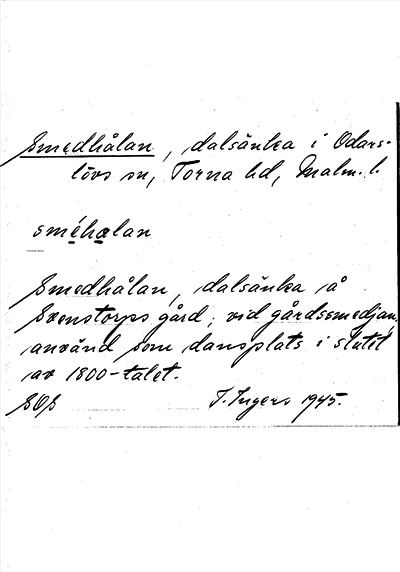 Smedhålan, dalsänka i Odars-
lövs sn, Torna hd, Malm. l.
sméhalan
Smedhålan, dalsänka å
Svenstorps gård; vid gårdssmedjan,
använd som dansplats i slutet
av 1800-talet.
SOS I. Ingers 1945.